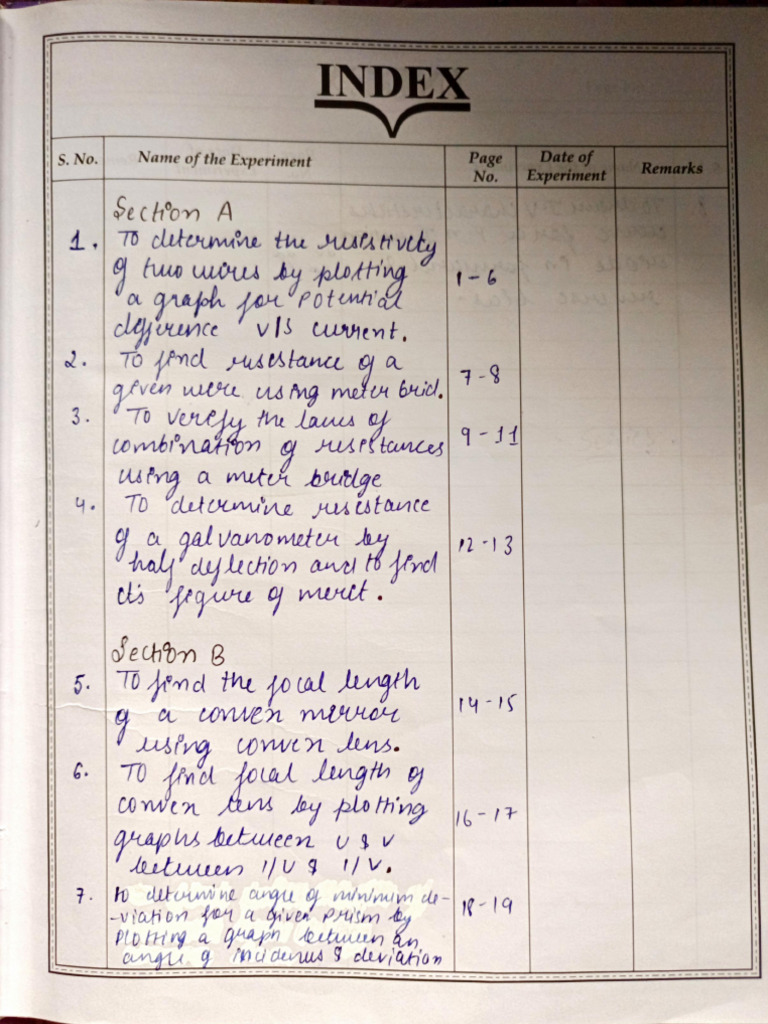 INDEX
S. No. Name of the Experiment Page No. Date of Experiment Remarks
Section A
1. To determine the resistivity
of two wires by plotting
a graph for Potential 1-6
difference v/s current.
2. To find resistance of a
given wire using meter brid. 7-8
3. To verify the laws of
combination of resistances 9-11
using a meter bridge
4. To determine resistance
of a galvanometer by 12-13
half deflection and to find
its figure of merit.
Section B
5. To find the focal length
of a convex mirror 14-15
using convex lens.
6. To find focal length of
convex lens by plotting 16-17
graphs between U & V
between 1/U & 1/V.
7. to determine angle of minimum de-
-viation for a given prism by 18-19
plotting a graph between an
angle of incidenus & deviation